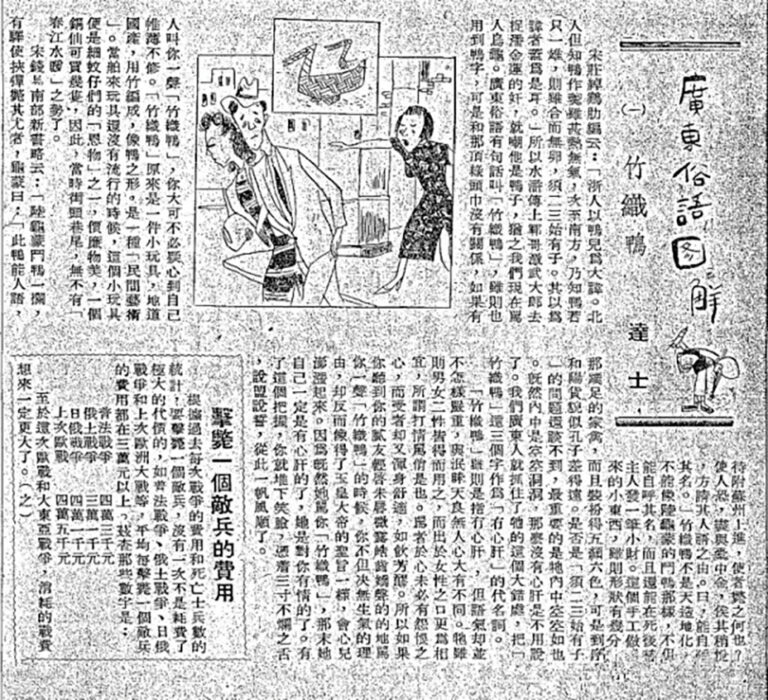 廣東俗語圖解
(一)竹織鴨
達士
宋莊綽鷄肋編云:「浙人以鴨兒為大諱。北
人但知鴨作羹雖甚熱無氣,後至南方,乃知鴨若
只一雄,則雖合而無卵,須二三始有子。其以為
諱者蓋為是耳。」所以水滸傳上鄆哥激武大郎去
捉潘金蓮的奸,就嘲他是鴨子,猶之我們現在罵
人烏龜。廣東俗語有句話叫「竹織鴨」,雖則也
用到鴨字,可是和那頂綠頭巾沒有關係,如果有
人叫你一聲「竹織鴨」,你大可不必疑心到自己
帷薄不修。「竹織鴨」原來是一件小玩具,地道
國產,用竹編成,像鴨之形。是一種「民間藝術
」。當舶來玩具還沒有流行的時候,這個小玩具
便是細蚊仔們的「恩物」之一,價廉物美,一個
銅仙可買幾隻,因此,當時街頭巷尾,無不有「
春江水暖」之勢了。
宋錢易南部新書略云:「陸龜蒙鬥鴨一欄,
有驛使挾彈斃其尤者,龜蒙曰:「此鴨能人語,
待附蘇州上進,使者斃之何也?」
使人恐,盡與橐中金,俟其稍悅
,方請其人語之由。曰,能自呼
其名。」竹織鴨不是天造地化,
不能像陸龜蒙的鬥鴨那樣,不但
能自呼其名,而且還能在死後替
主人發一筆小財。這個手工做
來的小東西,雖則形狀有幾分
那滿足的家禽,而且裝扮得五顏六色,可是到底
和陽貨貌似孔子差得遠。是否是「須二三始有子
」的問題還談不到,最重要的是牠內中空空如也
。既然內中是空空洞洞,那麼沒有心肝是不用說
了。我們廣東人就抓住了牠的這個大錯處,把「
竹織鴨」這三個字作為「冇心肝」的代名詞。
「竹織鴨」雖則是指冇心肝,但語氣却並
不怎樣嚴重,與泯眛天良無人心大有不同。牠雖
則男女二性皆得而用之,而出於女性之口更為相
宜,所謂打情罵俏是也。罵者於心未必有怨恨之
心,而受者却又渾身舒適,如飲芳醪。所以如果
你聽到你的膩友輕啓朱唇微露皓齒嬌聲的的地罵
你一聲「竹織鴨」的時候,你不但决無生氣的理
由,却反而像得了玉皇大帝的聖旨一樣,會心兒
澎漲起來。因為既然她罵你「竹織鴨」,那末她
自己一定是有心肝的了,她是對你有情的了。有
了這個把握,你就堆下笑臉,憑着三寸不爛之舌
,說盟說誓,從此一帆風順了。
擊斃一個敵兵的費用
根據過去每次戰爭的費用和死亡士兵數的
統計,要擊斃一個敵兵,沒有一次不是耗費了
極大的代價的,如普法戰爭、俄土戰爭、日俄
戰爭和上次歐洲大戰等,平均每擊斃一個敵兵
的費用都在三萬元以上,茲查那些數字是:
普法戰爭 四萬三千元
俄土戰爭 三萬一千元
日俄戰爭 四萬一千元
上次歐戰 四萬五千元
至於這次歐戰和大東亞戰爭,消耗的戰費
想來一定更大了。(之)